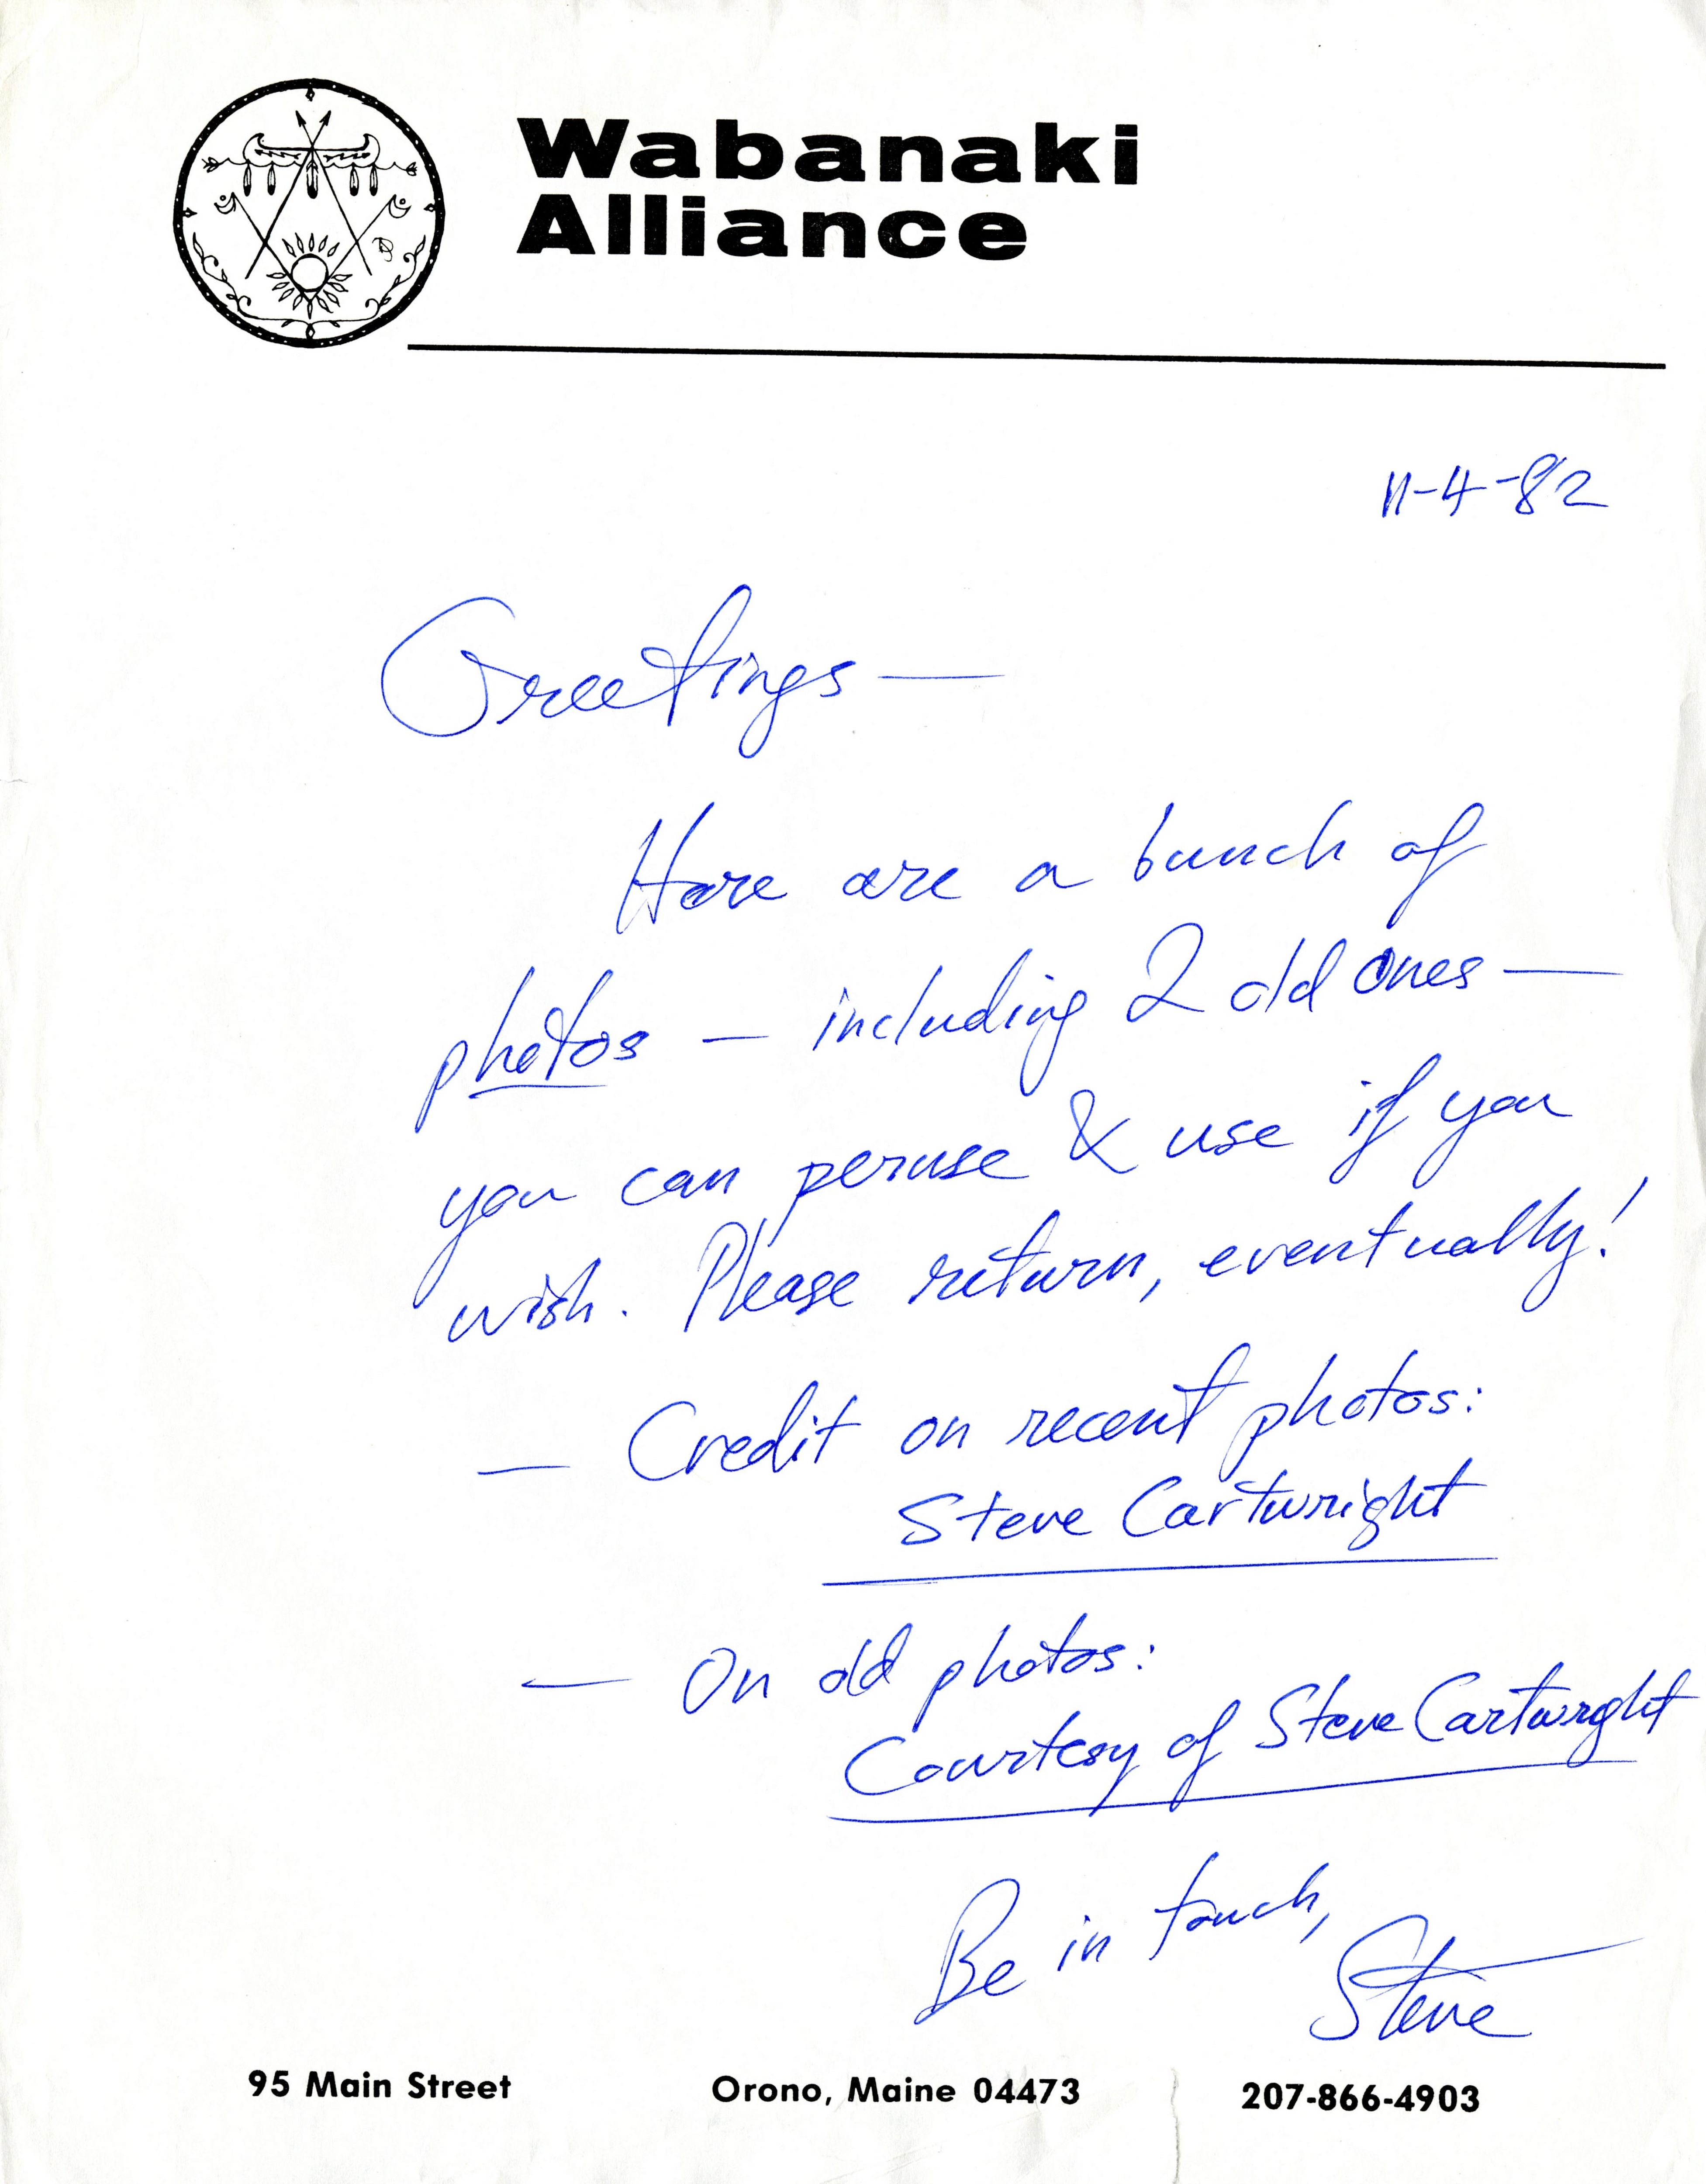 Wabanaki
Alliance
11-4-82
Greetings —
Here are a bunch of
photos — including 2 old ones —
you can peruse & use if you
wish. Please return, eventually!
— Credit on recent photos:
Steve Cartwright
— On old photos:
Courtesy of Steve Cartwright
Be in touch,
Steve
95 Main Street Orono, Maine 04473 207-866-4903